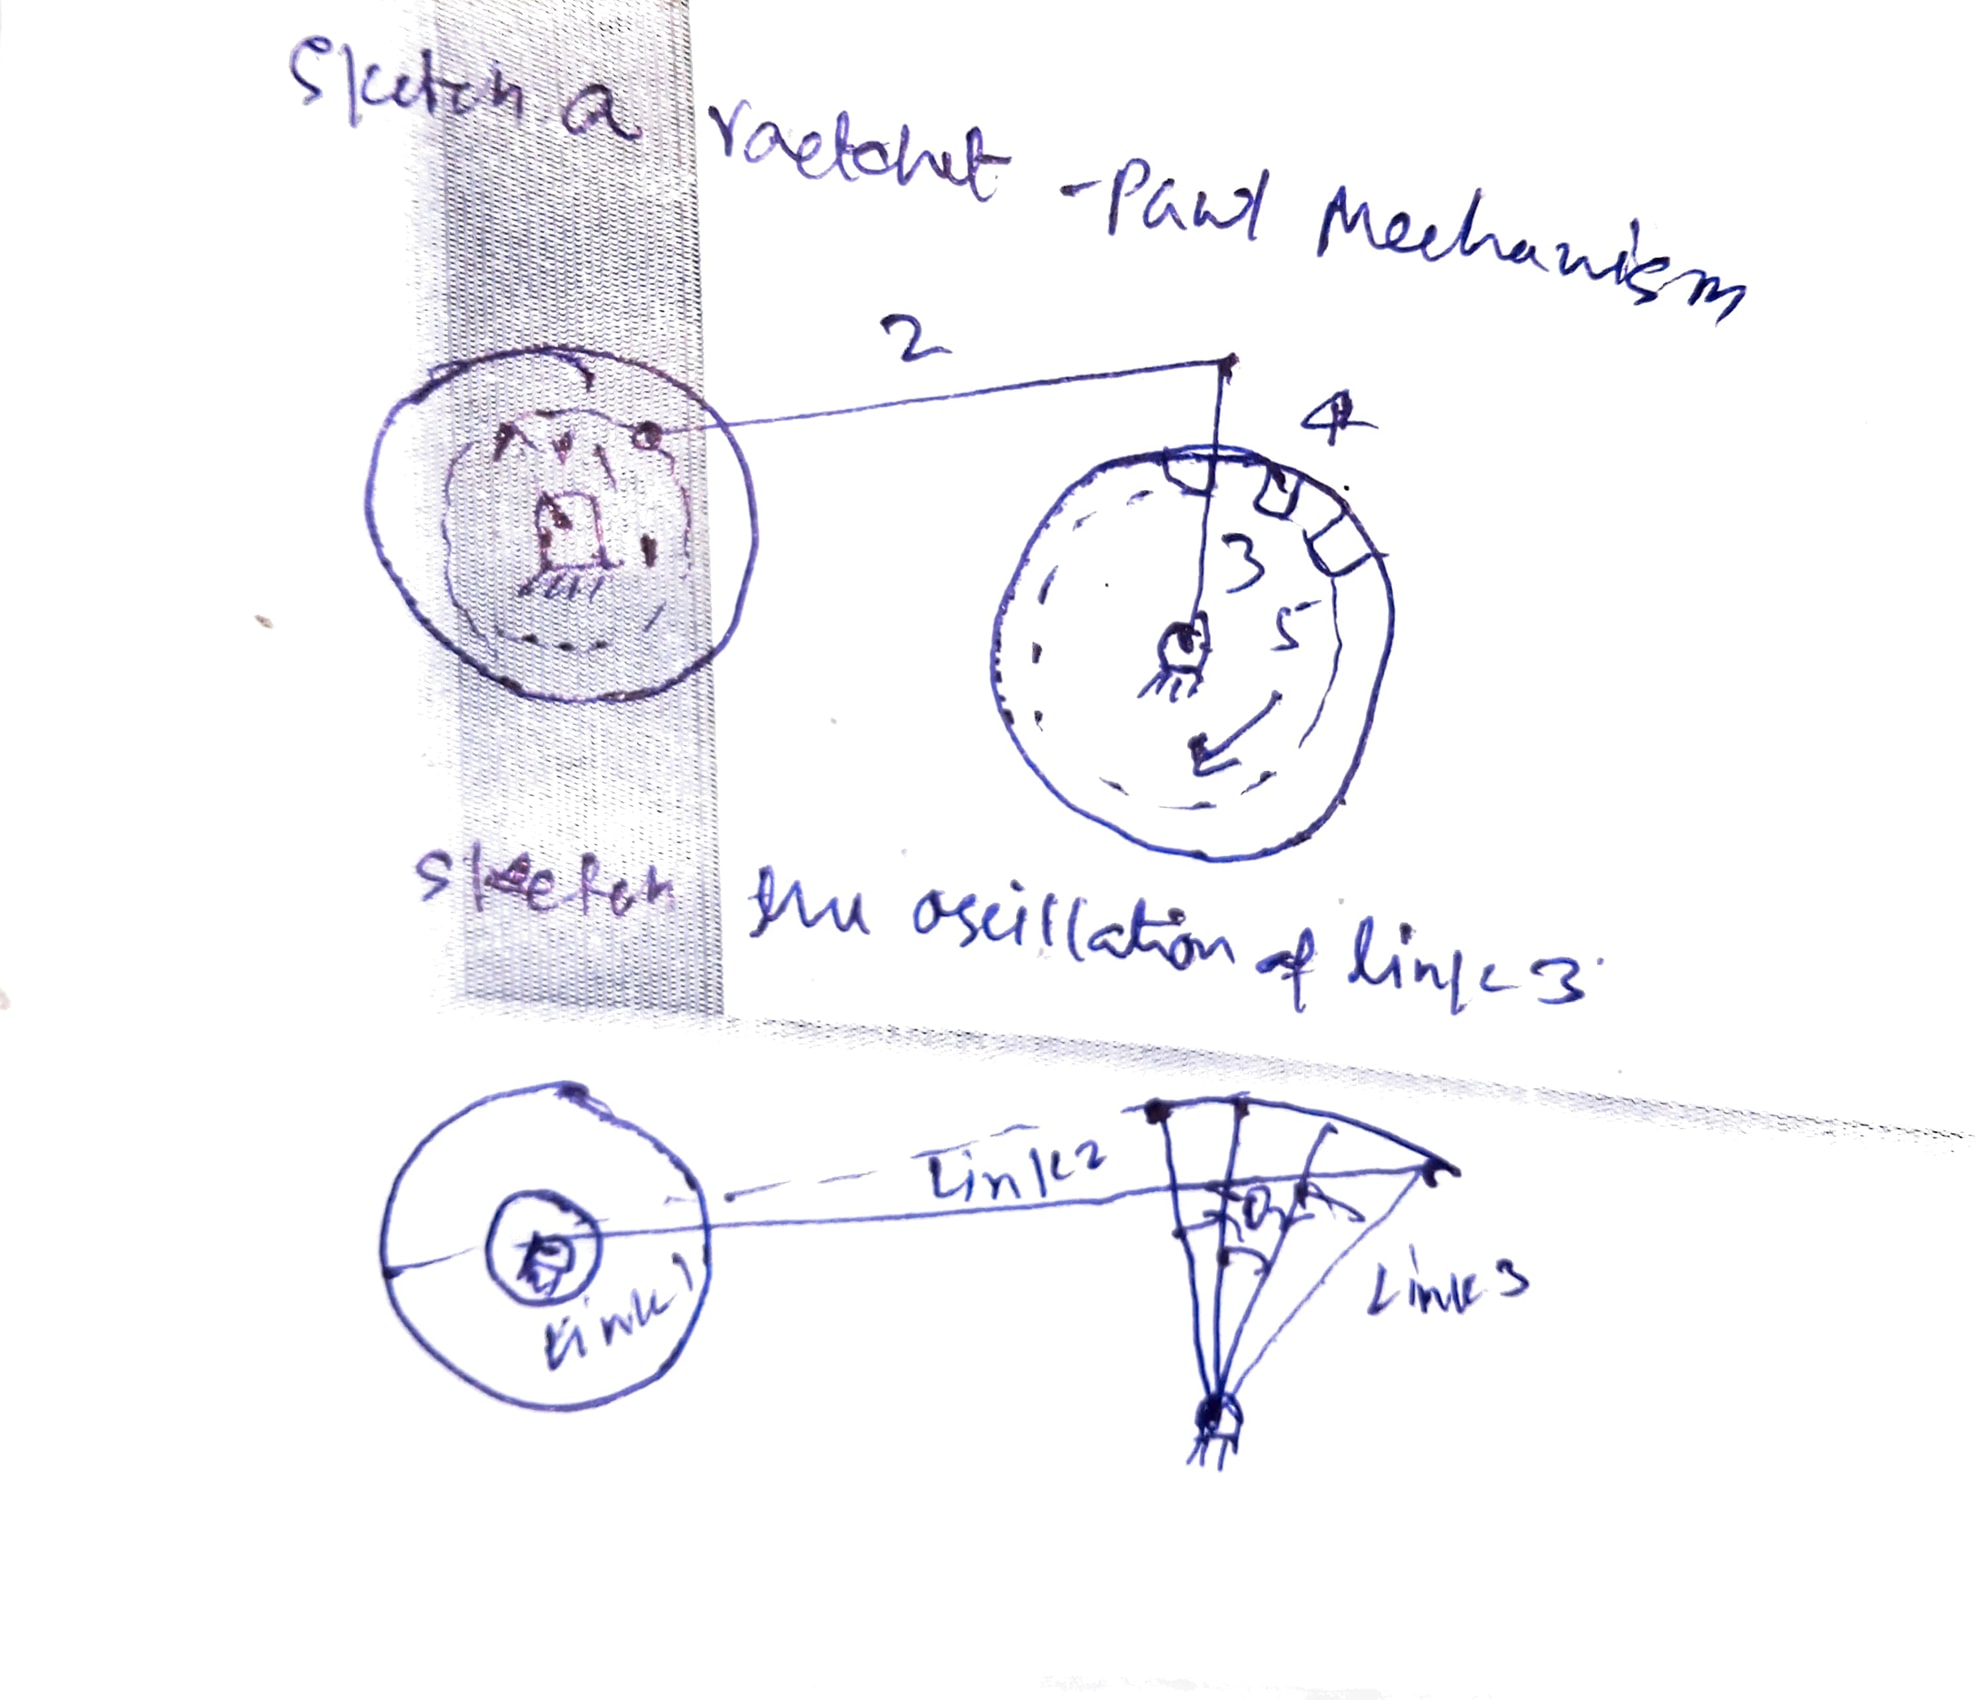 Sketch a raetchet - Pawl Mechanism
2
4
3
5
Sketch the oscillation of link 3.
Link 2
Link 1
Link 3